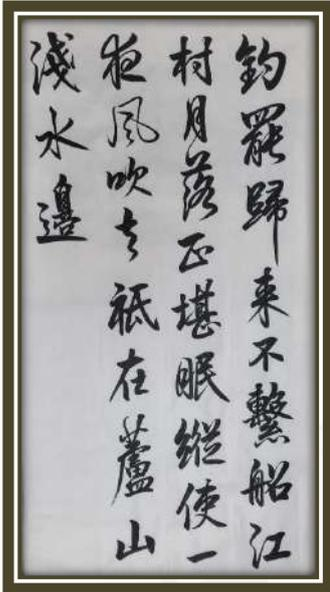 釣罷歸来不繫船江
村月落正堪眠縱使一
夜風吹去祗在蘆山
淺水邊